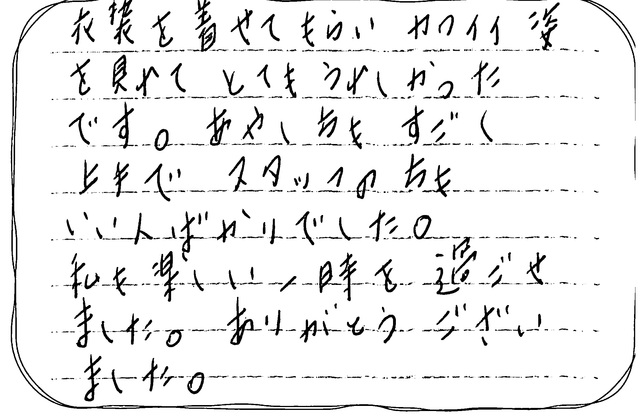 衣装を着せてもらい カワイイ 姿
を見れて とてもうれしかった
です。あやし方も すごく
上手で スタッフの方も
いい人ばかりでした。
私も楽しい時を 過ごせ
ました。ありがとう ござい
ました。